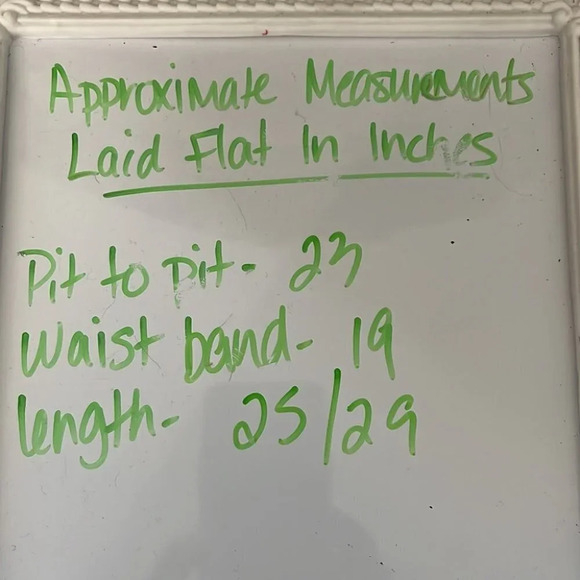 Approximate Measurements
Laid Flat In Inches
Pit to pit- 23
Waist band- 19
length- 25/29